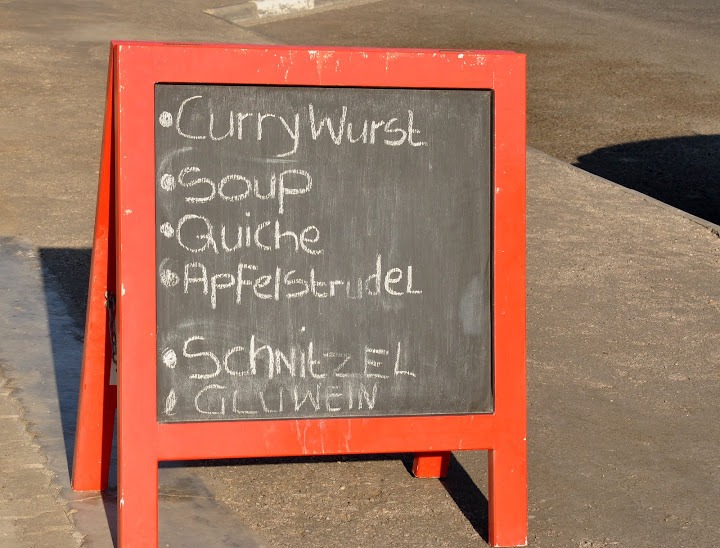 •Curry Wurst
•Soup
•Quiche
•Apfelstrudel
•Schnitzel
•GLUWEIN